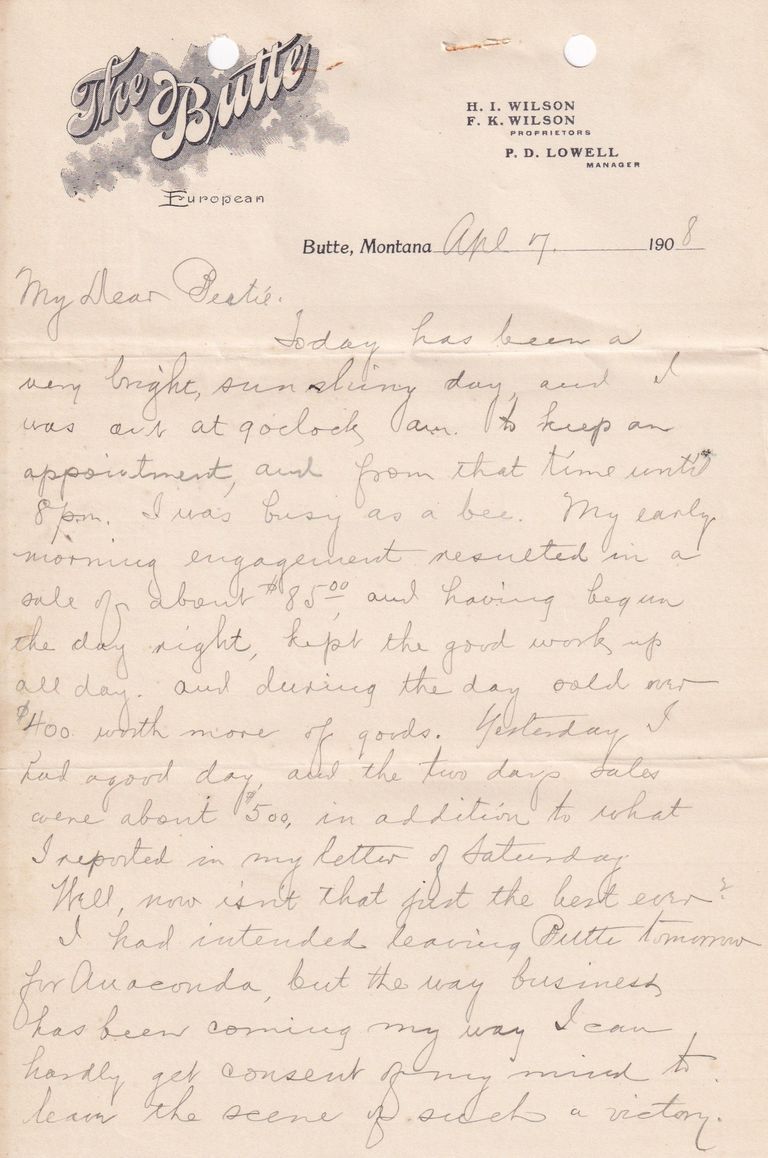 The Butte
European
H. I. WILSON
F. K. WILSON
PROPRIETORS
P. D. LOWELL
MANAGER
Butte, Montana Apl 7. 1908
My Dear Beatie.
Today has been a
very bright, sunshiny day, and I
was out at 9 o'clock am. to keep an
appointment, and from that time until
8 p.m. I was busy as a bee. My early
morning engagement resulted in a
sale of about $85.00, and having begun
the day right, kept the good work up
all day. and during the day sold over
$400 worth more of goods. Yesterday I
had a good day, and the two days sales
were about $500, in addition to what
I reported in my letter of Saturday
Well, now isn't that just the best ever?
I had intended leaving Butte tomorrow
for Anaconda, but the way business
has been coming my way I can
hardly get consent of my mind to
leave the scene of such a victory.